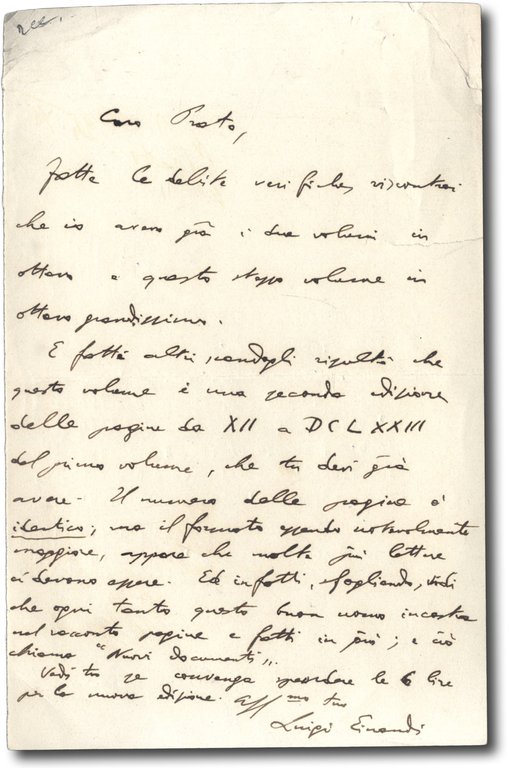 Caro Prato,
Fatte le debite verifiche, riscontrai
che io avevo già i due volumi in
ottavo e questo stesso volume in
ottavo grandissimo.
E fatti altri scandagli risulta che
questo volume è una seconda edizione
delle pagine da XII a DCLXXIII
del primo volume, che tu devi già
avere. Il numero delle pagine è
identico; ma il formato essendo notevolmente
maggiore, appare che molte più lettere
ci devono essere. Ed infatti, sfogliando, vedi
che ogni tanto questo buon uomo incastra
nel racconto pagine e fatti in più; e ciò
chiama "Nuovi documenti".
Vedi tu se convenga spendere le 6 lire
per la nuova edizione. aff.mo tuo
Luigi Einaudi